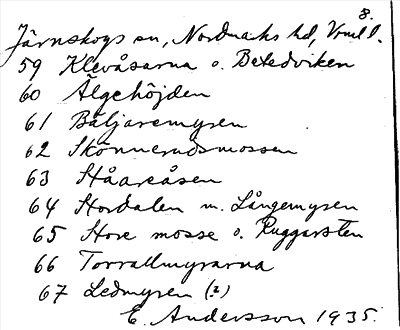 8.
Järnskogs sn, Nordmarks hd, Vrml l.
59 Klevåsarna o. Betedviken
60 Älgehöjden
61 Bäljaremyren
62 Skönnerudsmossen
63 Ståareåsen
64 Stordalen m. Långemyren
65 Store mosse o. Ruggarsten
66 Torrallmyrarna
67 Ledmyren (?)
E. Andersson 1935.